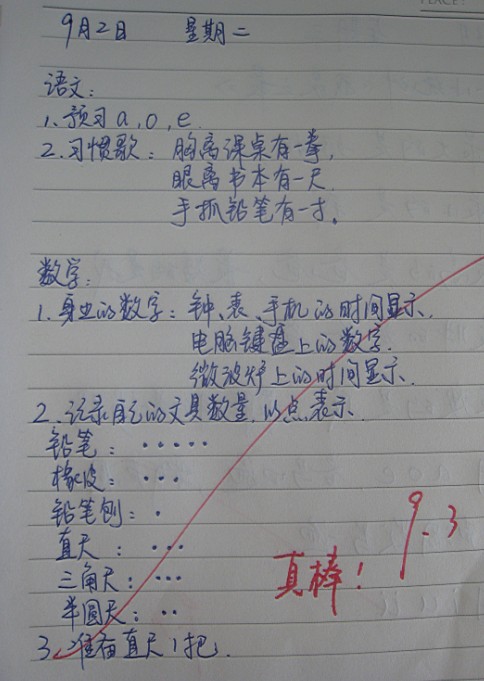 PLACE:
9月2日 星期二
语文:
1、预习a,o,e.
2、习惯歌:胸离课桌有一拳,
眼离书本有一尺
手抓铅笔有一寸。
数学:
1、身边的数字:钟、表、手机的时间显示、
电脑键盘上的数字、
微波炉上的时间显示、
2、记录自己的文具数量,以点表示、
铅笔:·····
橡皮:···
铅笔刨:·
直尺:···
三角尺:···
半圆尺:··
3、准备直尺1把、
真棒!
9.3